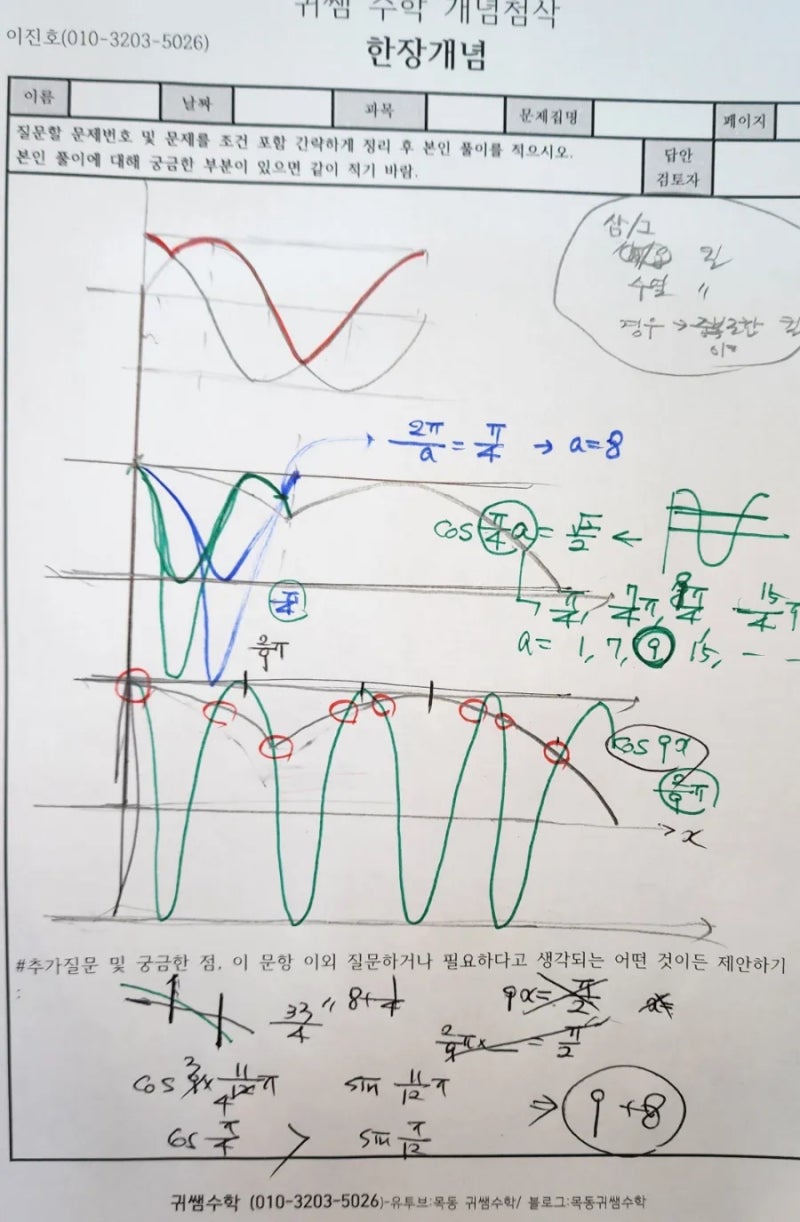 귀쌤 수학 개념첨삭
이진호(010-3203-5026)
한장개념
이름
날짜
과목
문제집명
페이지
질문할 문제번호 및 문제를 조건 포함 간략하게 정리 후 본인 풀이를 적으시오.
본인 풀이에 대해 궁금한 부분이 있으면 같이 적기 바람.
답안
검토자
삼/그
킬
수열 〃
경우 → 중복조합 킬
2π/a = π/4 → a=8
cos π/4 a = √2/2 ←
π/4, 7/4π, 9π/4, 15/4π
a= 1, 7, 9, 15, - -
π/4
2/9π
cos 9x
2/9π
x
#추가질문 및 궁금한 점, 이 문항 이외 질문하거나 필요하다고 생각되는 어떤 것이든 제안하기
:
33/4 〃 8+1/4
9x= π/2
2/9π = π/2
cos 9x 11/12π sin 11/12π
cos π/4 > sin π/12
⇒ 9+8
귀쌤수학 (010-3203-5026)-유투브:목동 귀쌤수학/ 블로그:목동귀쌤수학